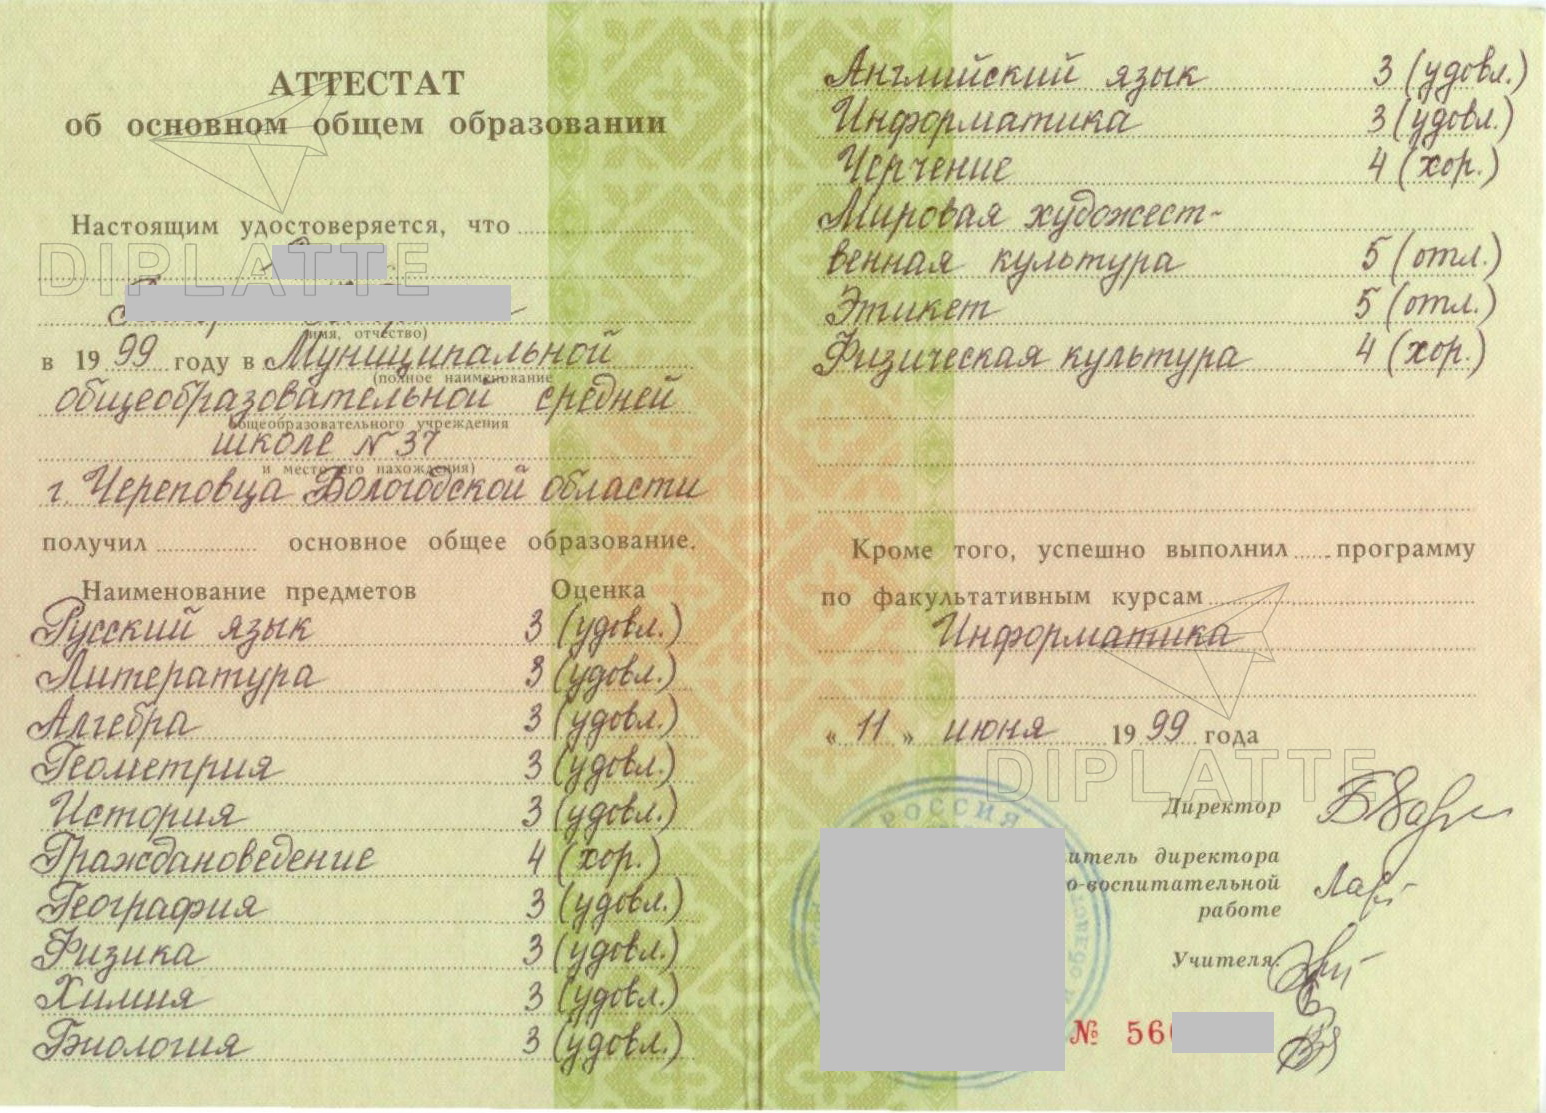 АТТЕСТАТ
об основном общем образовании
Настоящим удостоверяется, что
DIPLATTE
имя, отчество)
в 1999 году в Муниципальной
(полное наименование
общеобразовательной средней
общеобразовательного учреждения
школе N 37
и место его нахождения)
г. Череповца Вологодской области
получил основное общее образование.
Наименование предметов Оценка
Русский язык 3 (удовл.)
Литература 3 (удовл.)
Алгебра 3 (удовл.)
Геометрия 3 (удовл.)
История 3 (удовл.)
Граждановедение 4 (хор.)
География 3 (удовл.)
Физика 3 (удовл.)
Химия 3 (удовл.)
Биология 3 (удовл.)
Английский язык 3 (удовл.)
Информатика 3 (удовл.)
Черчение 4 (хор.)
Мировая художест-
венная культура 5 (отл.)
Этикет 5 (отл.)
Физическая культура 4 (хор.)
Кроме того, успешно выполнил программу
по факультативным курсам
Информатика
« 11 » июня 1999 года
DIPLATTE
РОССИЯ
Директор
итель директора
о-воспитательной
работе
Учителя:
№ 56